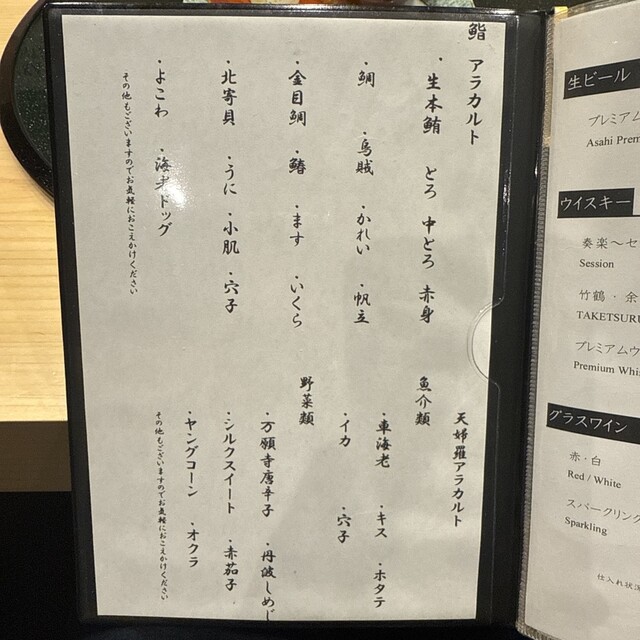 鮨 アラカルト
・生本鮪 とろ 中とろ 赤身
・鯛 ・烏賊 ・かれい ・帆立
・金目鯛 ・鰆 ・ます ・いくら
・北寄貝 ・うに ・小肌 ・穴子
・よこわ ・海老ドッグ
その他もございますのでお気軽におこえかけください
天婦羅アラカルト
魚介類
・車海老 ・キス ・ホタテ
・イカ ・穴子
野菜類
・万願寺唐辛子 ・丹波しめじ
・シルクスイート ・赤茄子
・ヤングコーン ・オクラ
その他もございますのでお気軽におこえかけください
生ビール
プレミアム
Asahi Prem
ウイスキー
奏楽〜セ
Session
竹鶴・余
TAKETSURU
プレミアムウ
Premium Whis
グラスワイン
赤・白
Red / White
スパークリング
Sparkling
仕入れ状況